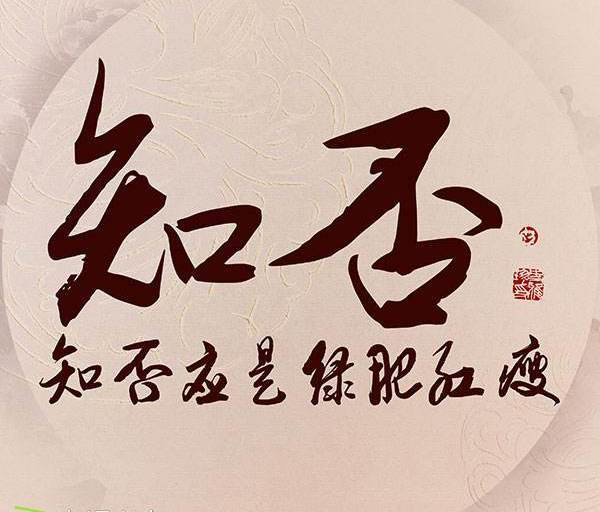 知否
知否应是绿肥红瘦